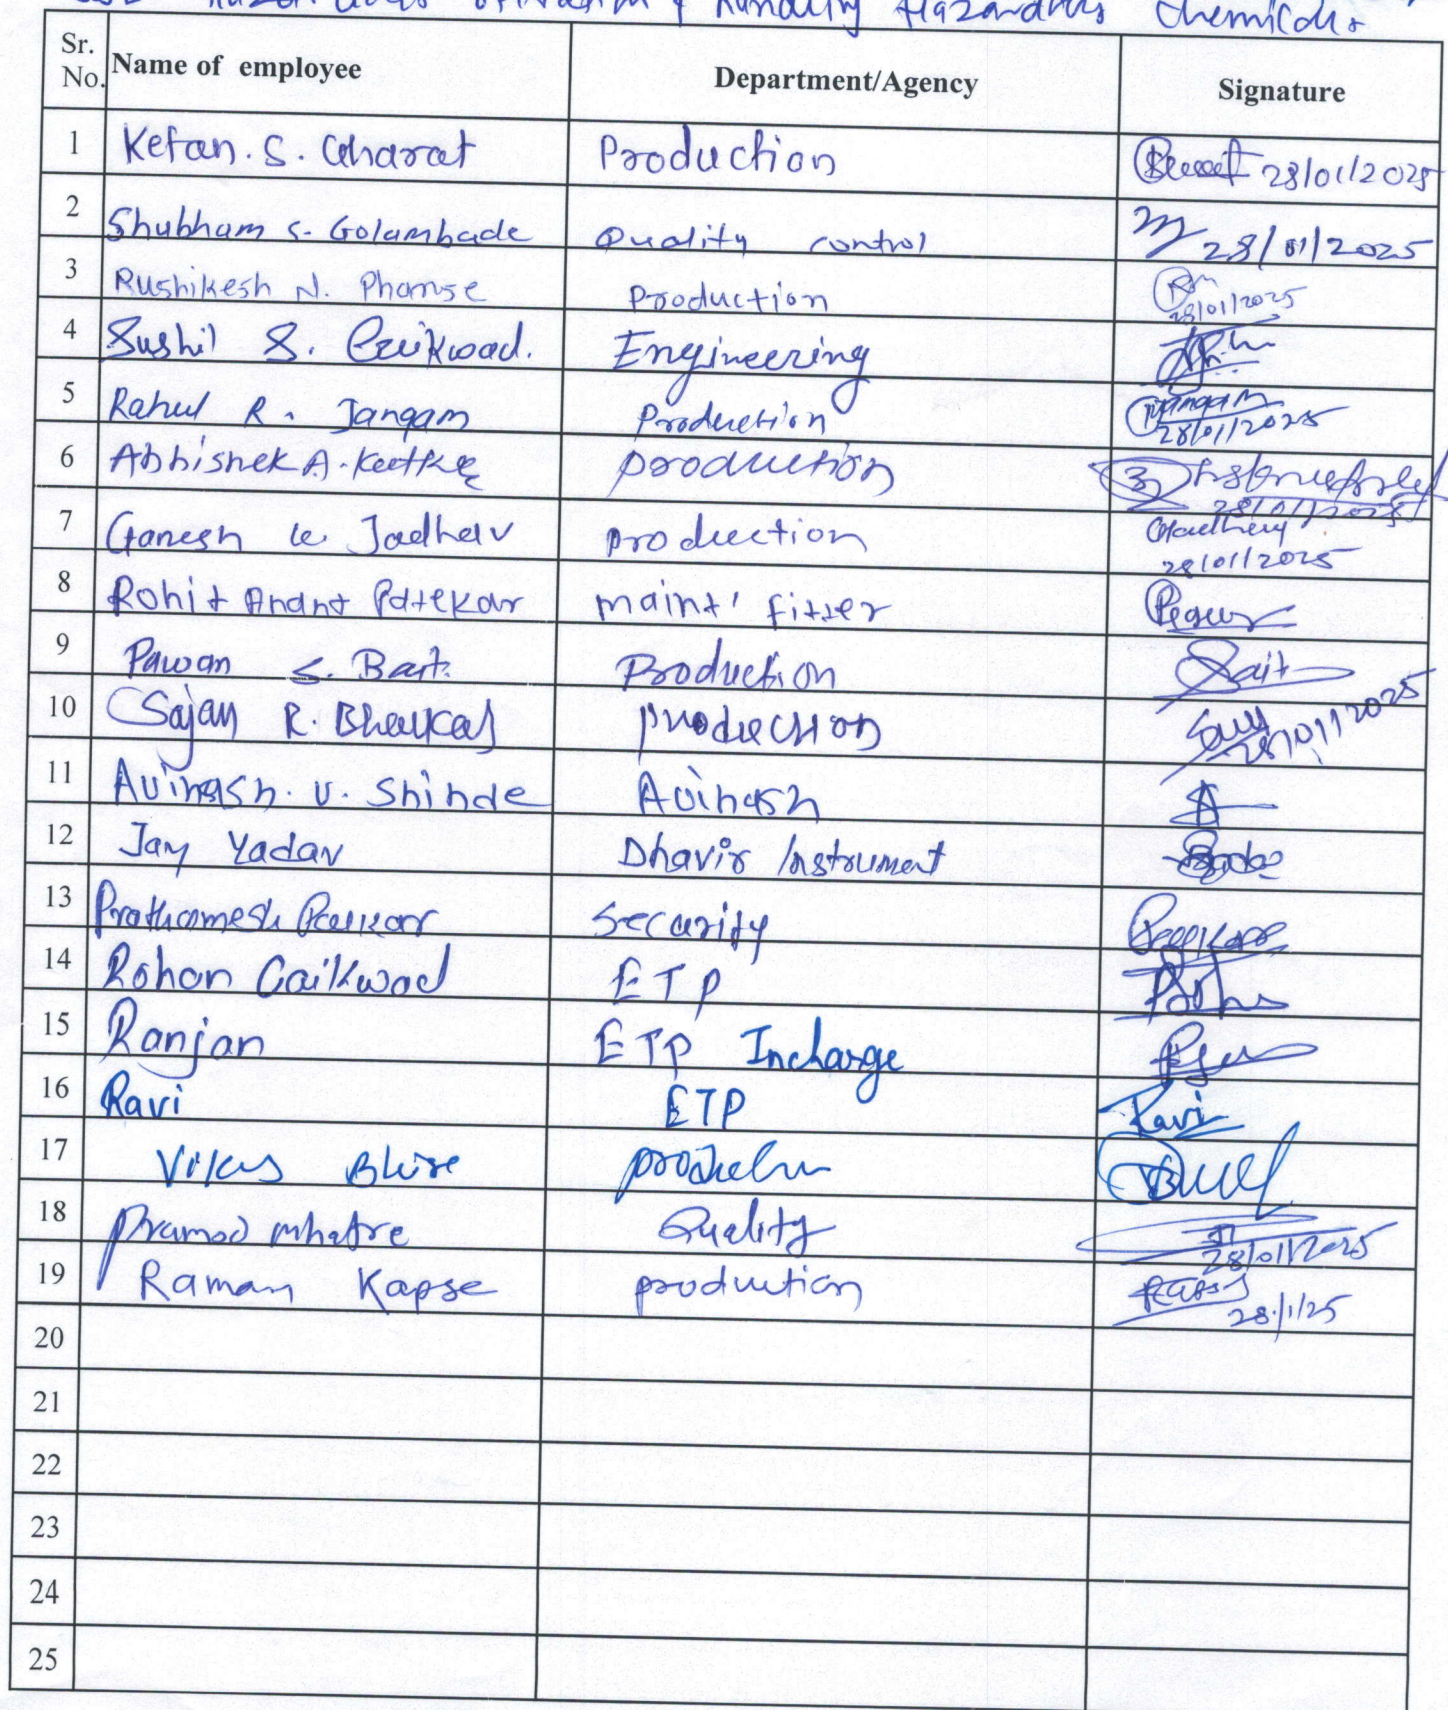 Hazardous operation & handling Hazardous Chemicals
Sr. No. Name of employee Department/Agency Signature
1 Ketan. S. Gharat Production 28/01/2025
2 Shubham S. Golambade Quality control 28/01/2025
3 Rushikesh N. Phamse Production 28/01/2025
4 Sushil S. Gaikwad. Engineering
5 Rahul R. Jangam Production Jangam 28/01/2025
6 Abhishek A. production 28/01/2025
7 Ganesh Jadhav production 28/01/2025
8 Rohit Anant Patekar maint' fitter
9 Pawan S. Bait. Production Bait
10 Sajan R. production 28/01/2025
11 Avinash. V. Shinde Avinash
12 Jay Yadav Dhavir Instrument
13 Prathamesh Security
14 Rohan Gaikwad ETP
15 Ranjan ETP Incharge
16 Ravi ETP Ravi
17 Vikas Bhise
18 Pramod Mhatre Quality 28/01/2025
19 Raman Kapse production 28/1/25
20
21
22
23
24
25